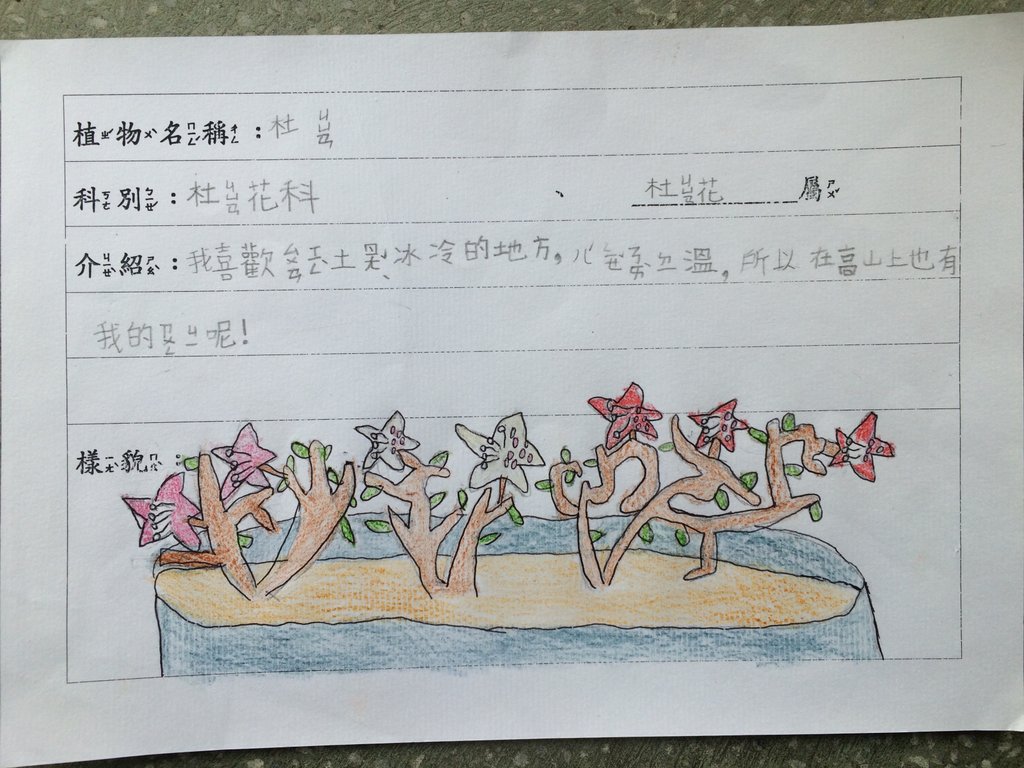 植ㄓˊ物ㄨˋ名ㄇㄧㄥˊ稱ㄔㄥ：杜ㄐㄩㄢ
科ㄎㄜ別ㄅㄧㄝˊ：杜ㄐㄩㄢ花科、杜ㄐㄩㄢ花屬ㄕㄨˇ
介ㄐㄧㄝˋ紹ㄕㄠˋ：我喜歡土冰冷的地方，溫，所以在高山上也有
我的呢！
樣ㄧㄤˋ貌ㄇㄠˋ：